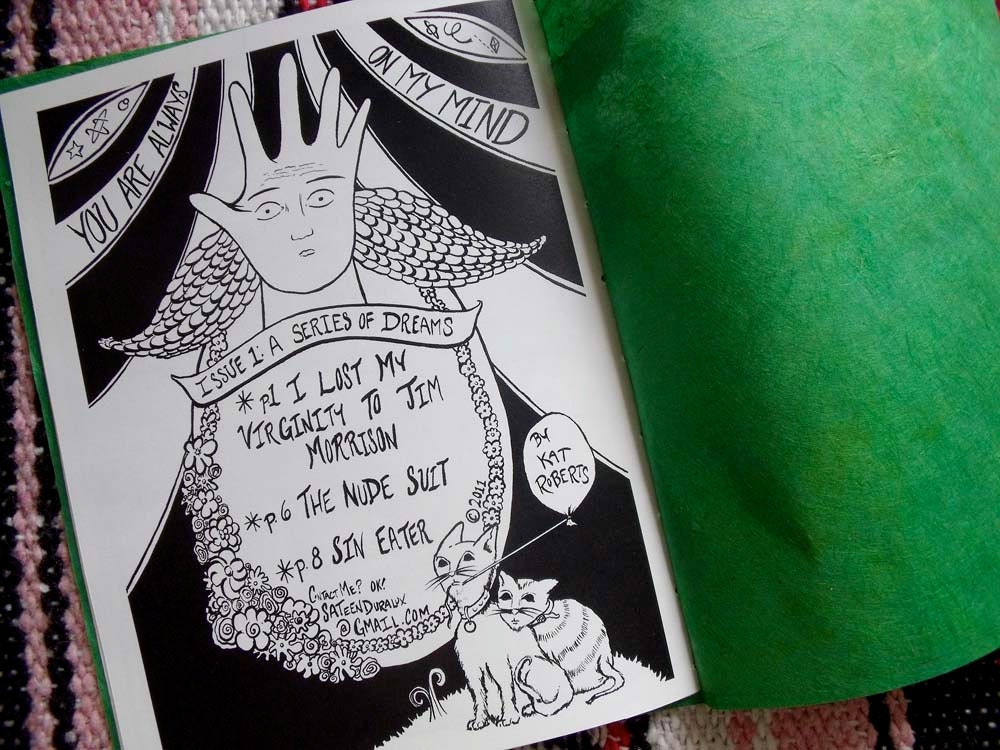 YOU ARE ALWAYS
ON MY MIND
ISSUE 1: A SERIES OF DREAMS
*p1 I LOST MY
VIRGINITY TO JIM
MORRISON
*p.6 THE NUDE SUIT
*p.8 SIN EATER
CONTACT ME? OK!
SATEENDURAUX
@GMAIL.COM
©2011
BY
KAT
ROBERTS